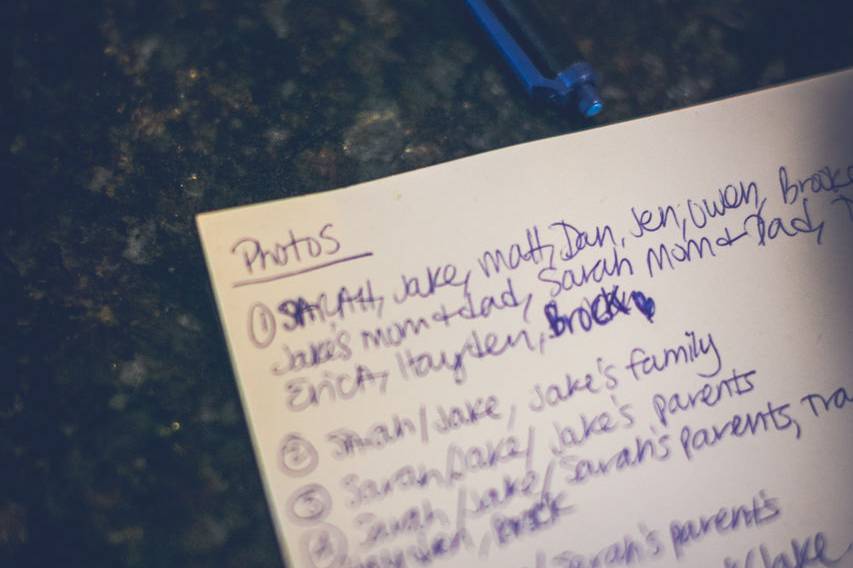 Photos
① SARAH, Jake, Matt, Dan, Jen, Owen, Brooke
Jake's mom + dad, Sarah mom + Dad,
Erica, Hayden, Brock
② Sarah/Jake, Jake's family
③ Sarah/Jake/Jake's parents
④ Sarah/Jake/Sarah's parents, Tra
Hayden, Brock
/Sarah's parent's
/Jake